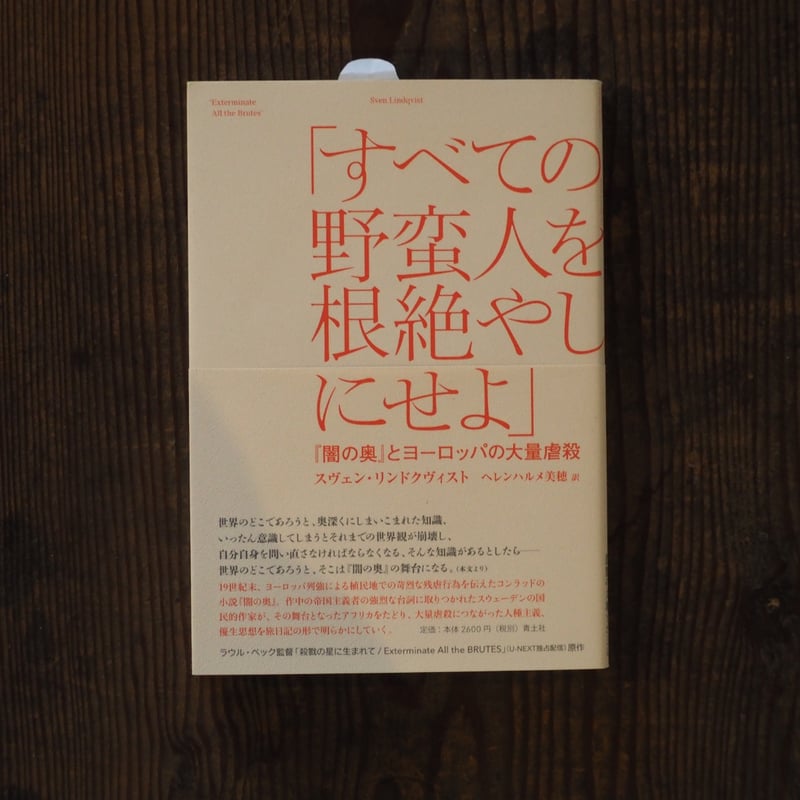 'Exterminate
All the Brutes'
Sven Lindqvist
「すべての
野蛮人を
根絶やし
にせよ」
『闇の奥』とヨーロッパの大量虐殺
スヴェン・リンドクヴィスト ヘレンハルメ美穂 訳
世界のどこであろうと、奥深くにしまいこまれた知識、
いったん意識してしまうとそれまでの世界観が崩壊し、
自分自身を問い直さなければならなくなる、そんな知識があるとしたら——
世界のどこであろうと、そこは『闇の奥』の舞台になる。(本文より)
19世紀末、ヨーロッパ列強による植民地での苛烈な残虐行為を伝えたコンラッドの
小説『闇の奥』。作中の帝国主義者の強烈な台詞に取りつかれたスウェーデンの国
民的作家が、その舞台となったアフリカをたどり、大量虐殺につながった人種主義、
優生思想を旅日記の形で明らかにしていく。 定価:本体2600円(税別) 青土社
ラウル・ペック監督「殺戮の星に生まれて/Exterminate All the BRUTES」(U-NEXT独占配信)原作